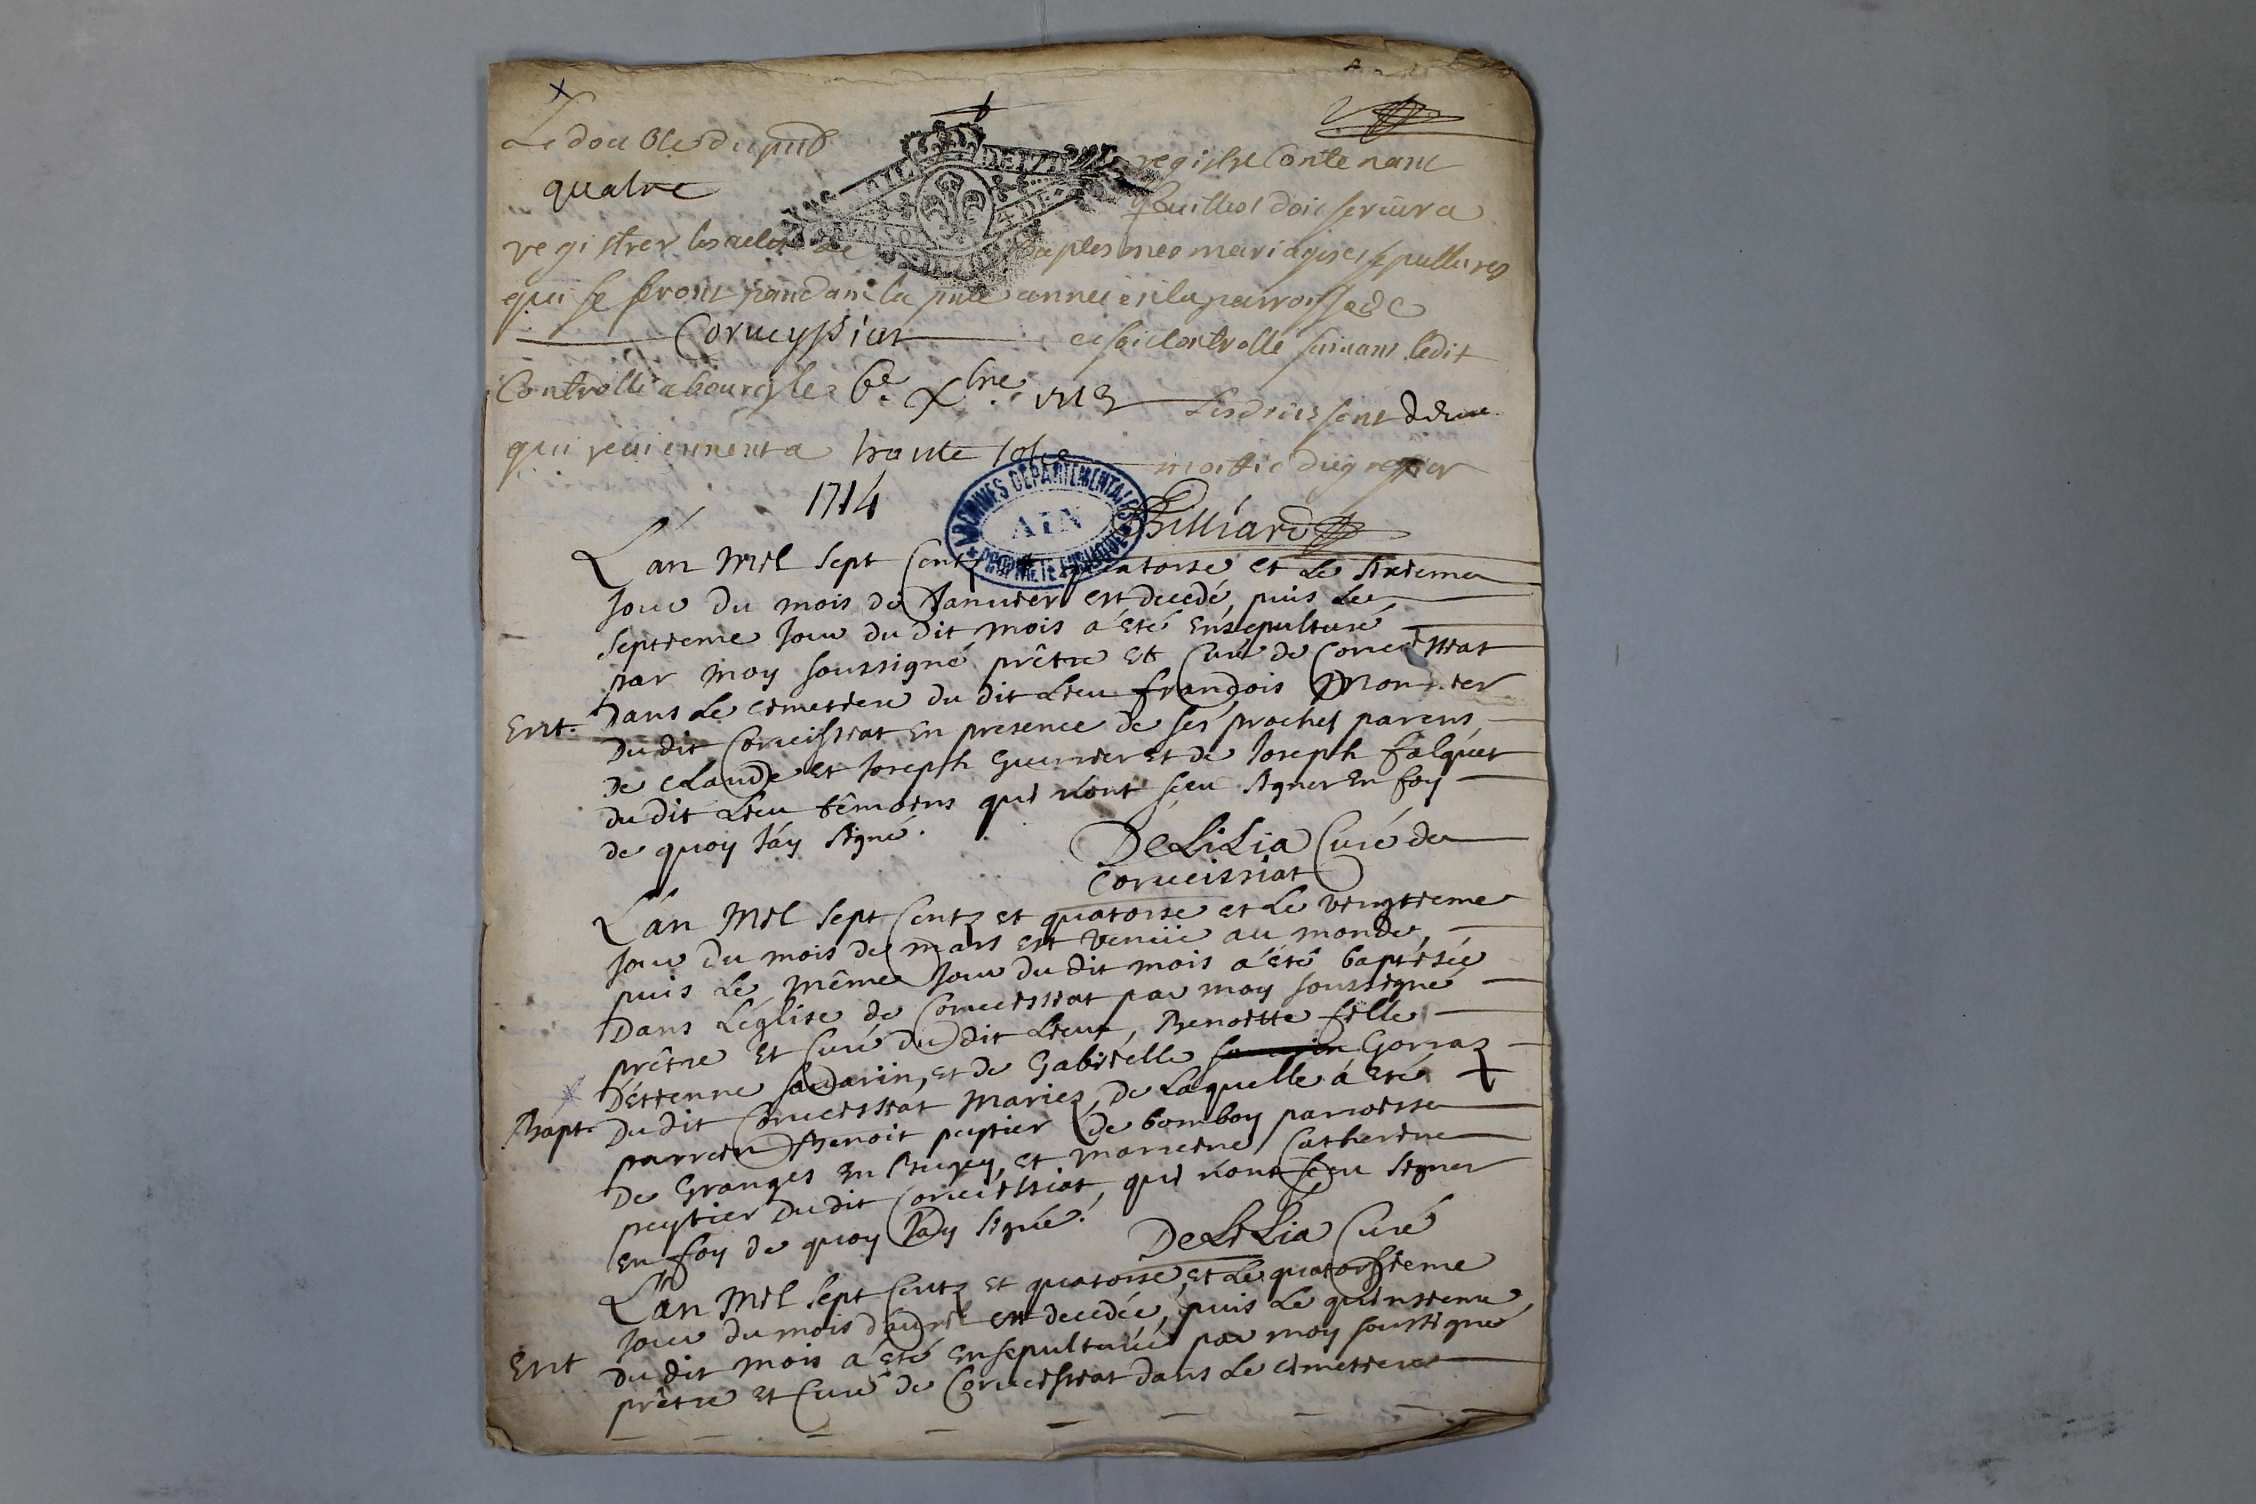 Le double du pnt registre Contenant
quatre feuillets dois servir a
registrer les actes de baptesmes mariages sepultures
qui se feront pendant la pnte année en la parroisse de
Corueyssiat ce soit controllé suivant ledit
Controllé a bourg le 6e Xbre 1713 Les droits sont deux
qui reviennent a trante sols moitié du greffier
1714
Billiard
ARCHIVES DEPARTEMENTALES
AIN
PROPRIETE PUBLIQUE
L'an Mil sept Centz et quatorse et Le sixieme
Jour du mois de Januier est decedé, puis Le
septieme Jour du dit mois a été ensepulturé
par moy soussigné prêtre et Curé de Corueissiat
Dans Le cimetiere du dit Lieu françois Monnier
Ent. Du dit Corueissiat En presence de ses proches parens
De claude et Joseph Gunier et de Joseph falquet
du dit Lieu têmoins qui n'ont sçeu signer En foy
de quoy J'áy signé.
DeLiLia Curé de
Corueissiat
L'án Mil sept Centz et quatorse et Le vingtieme
Jour du mois de mars est venüe au monde,
puis Le même Jour du dit mois a été baptisée
Dans L'église de Corueissiat par moy soussigné
prêtre et Curé du dit Lieu, Benoitte fille
D'étienne sadarin, et de Gabrielle Gorraz
Bapt. Du dit Corueissiat mariez, de Laquelle á été
parrein Benoit peytier de bomboy parroisse
De Granges en Bugey, et marreine Catherine
peytier du dit Corueissiat, qui n'ont sçeu signer
En foy de quoy J'ay signé.
DeLiLia Curé
L'an Mil sept Centz et quatorse, et Le quatorsieme
Jour du mois d'auril est decedée, puis Le quinsieme
Ent Du dit mois a été ensepulturée par moy soussigné
prêtre et Curé de Corueissiat dans Le cimetiere